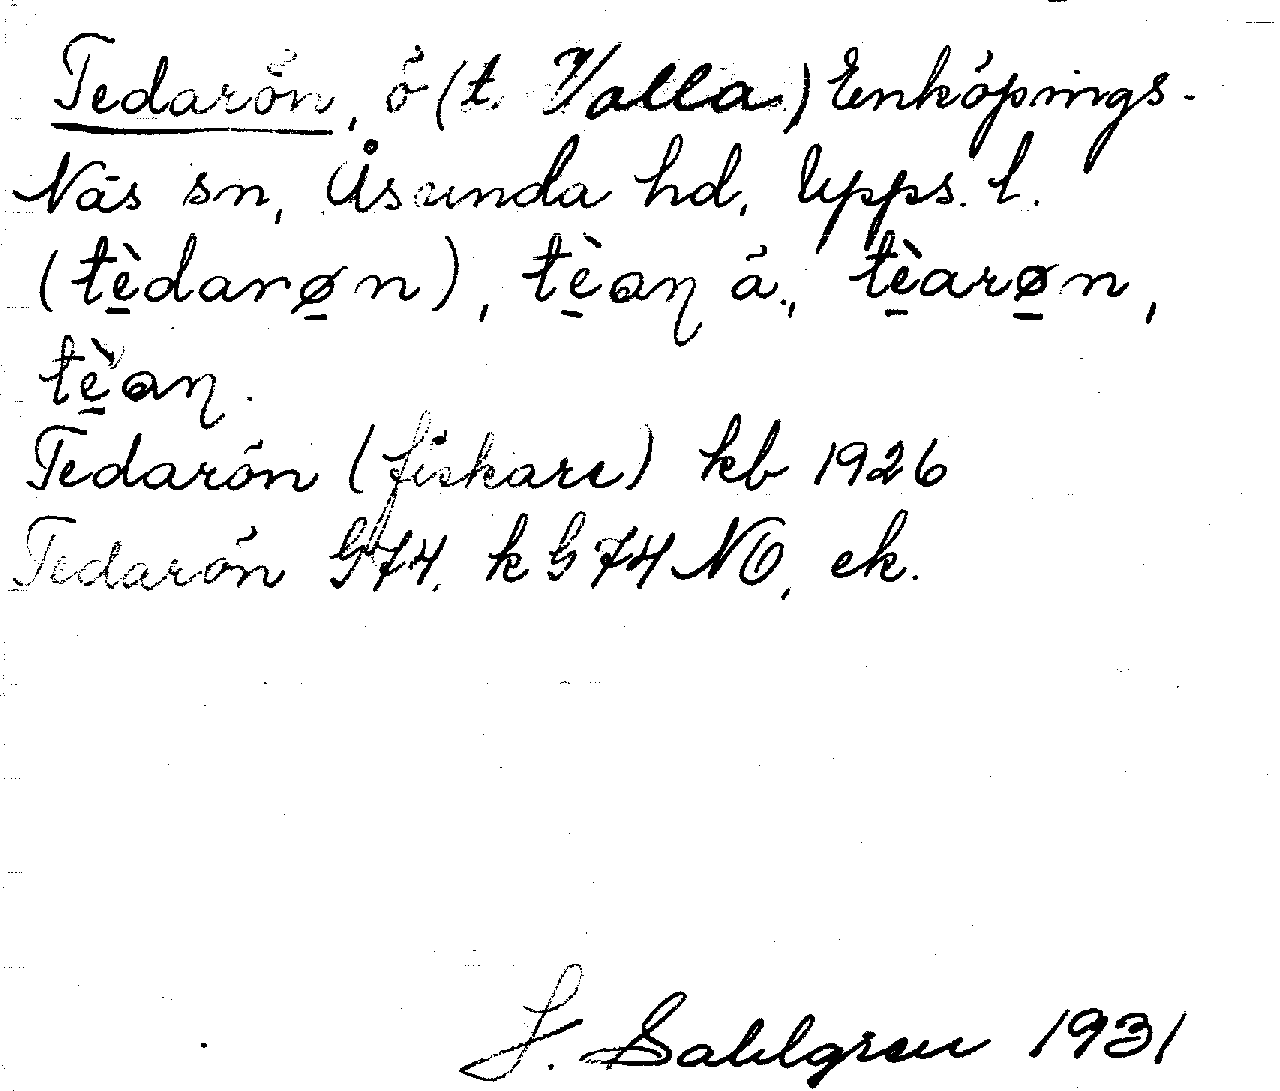 Tedarön, ö (t. Valla) Enköpings-
Näs sn, Åsunda hd, Upps. l.
(tè̱darø̱n), tè̱aƞ ä., tè̱arø̱n,
tè̱aƞ.
Tedarön (fiskare) kb 1926
Tedarön G74. k G74 NO, ek.
J. Sahlgren 1931